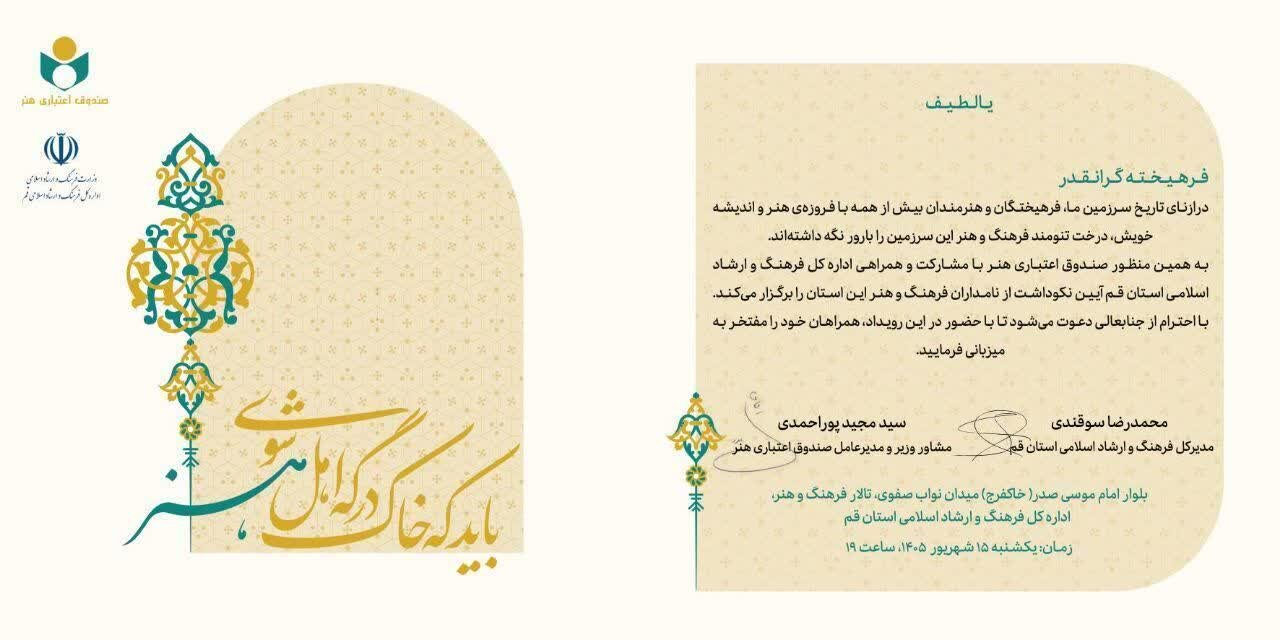 یا لطیف
فرهیخته گرانقدر
درازنای تاریخ سرزمین ما، فرهیختگان و هنرمندان بیش از همه با فروزه‌ی هنر و اندیشه
خویش، درخت تنومند فرهنگ و هنر این سرزمین را بارور نگه داشته‌اند.
به همین منظور صندوق اعتباری هنر با مشارکت و همراهی اداره کل فرهنگ و ارشاد
اسلامی استان قم آیین نکوداشت از نامداران فرهنگ و هنر این استان را برگزار می‌کند.
با احترام از جنابعالی دعوت می‌شود تا با حضور در این رویداد، همراهان خود را مفتخر به
میزبانی فرمایید.
محمدرضا سوقندی
مدیرکل فرهنگ و ارشاد اسلامی استان قم
سید مجید پوراحمدی
مشاور وزیر و مدیرعامل صندوق اعتباری هنر
بلوار امام موسی صدر( خاکفرج) میدان نواب صفوی، تالار فرهنگ و هنر،
اداره کل فرهنگ و ارشاد اسلامی استان قم
زمان: یکشنبه ۱۵ شهریور ۱۴۰۵، ساعت ۱۹
صندوق اعتباری هنر
وزارت فرهنگ و ارشاد اسلامی
اداره کل فرهنگ و ارشاد اسلامی قم
باید که خاک درگه اهل هنر شوی